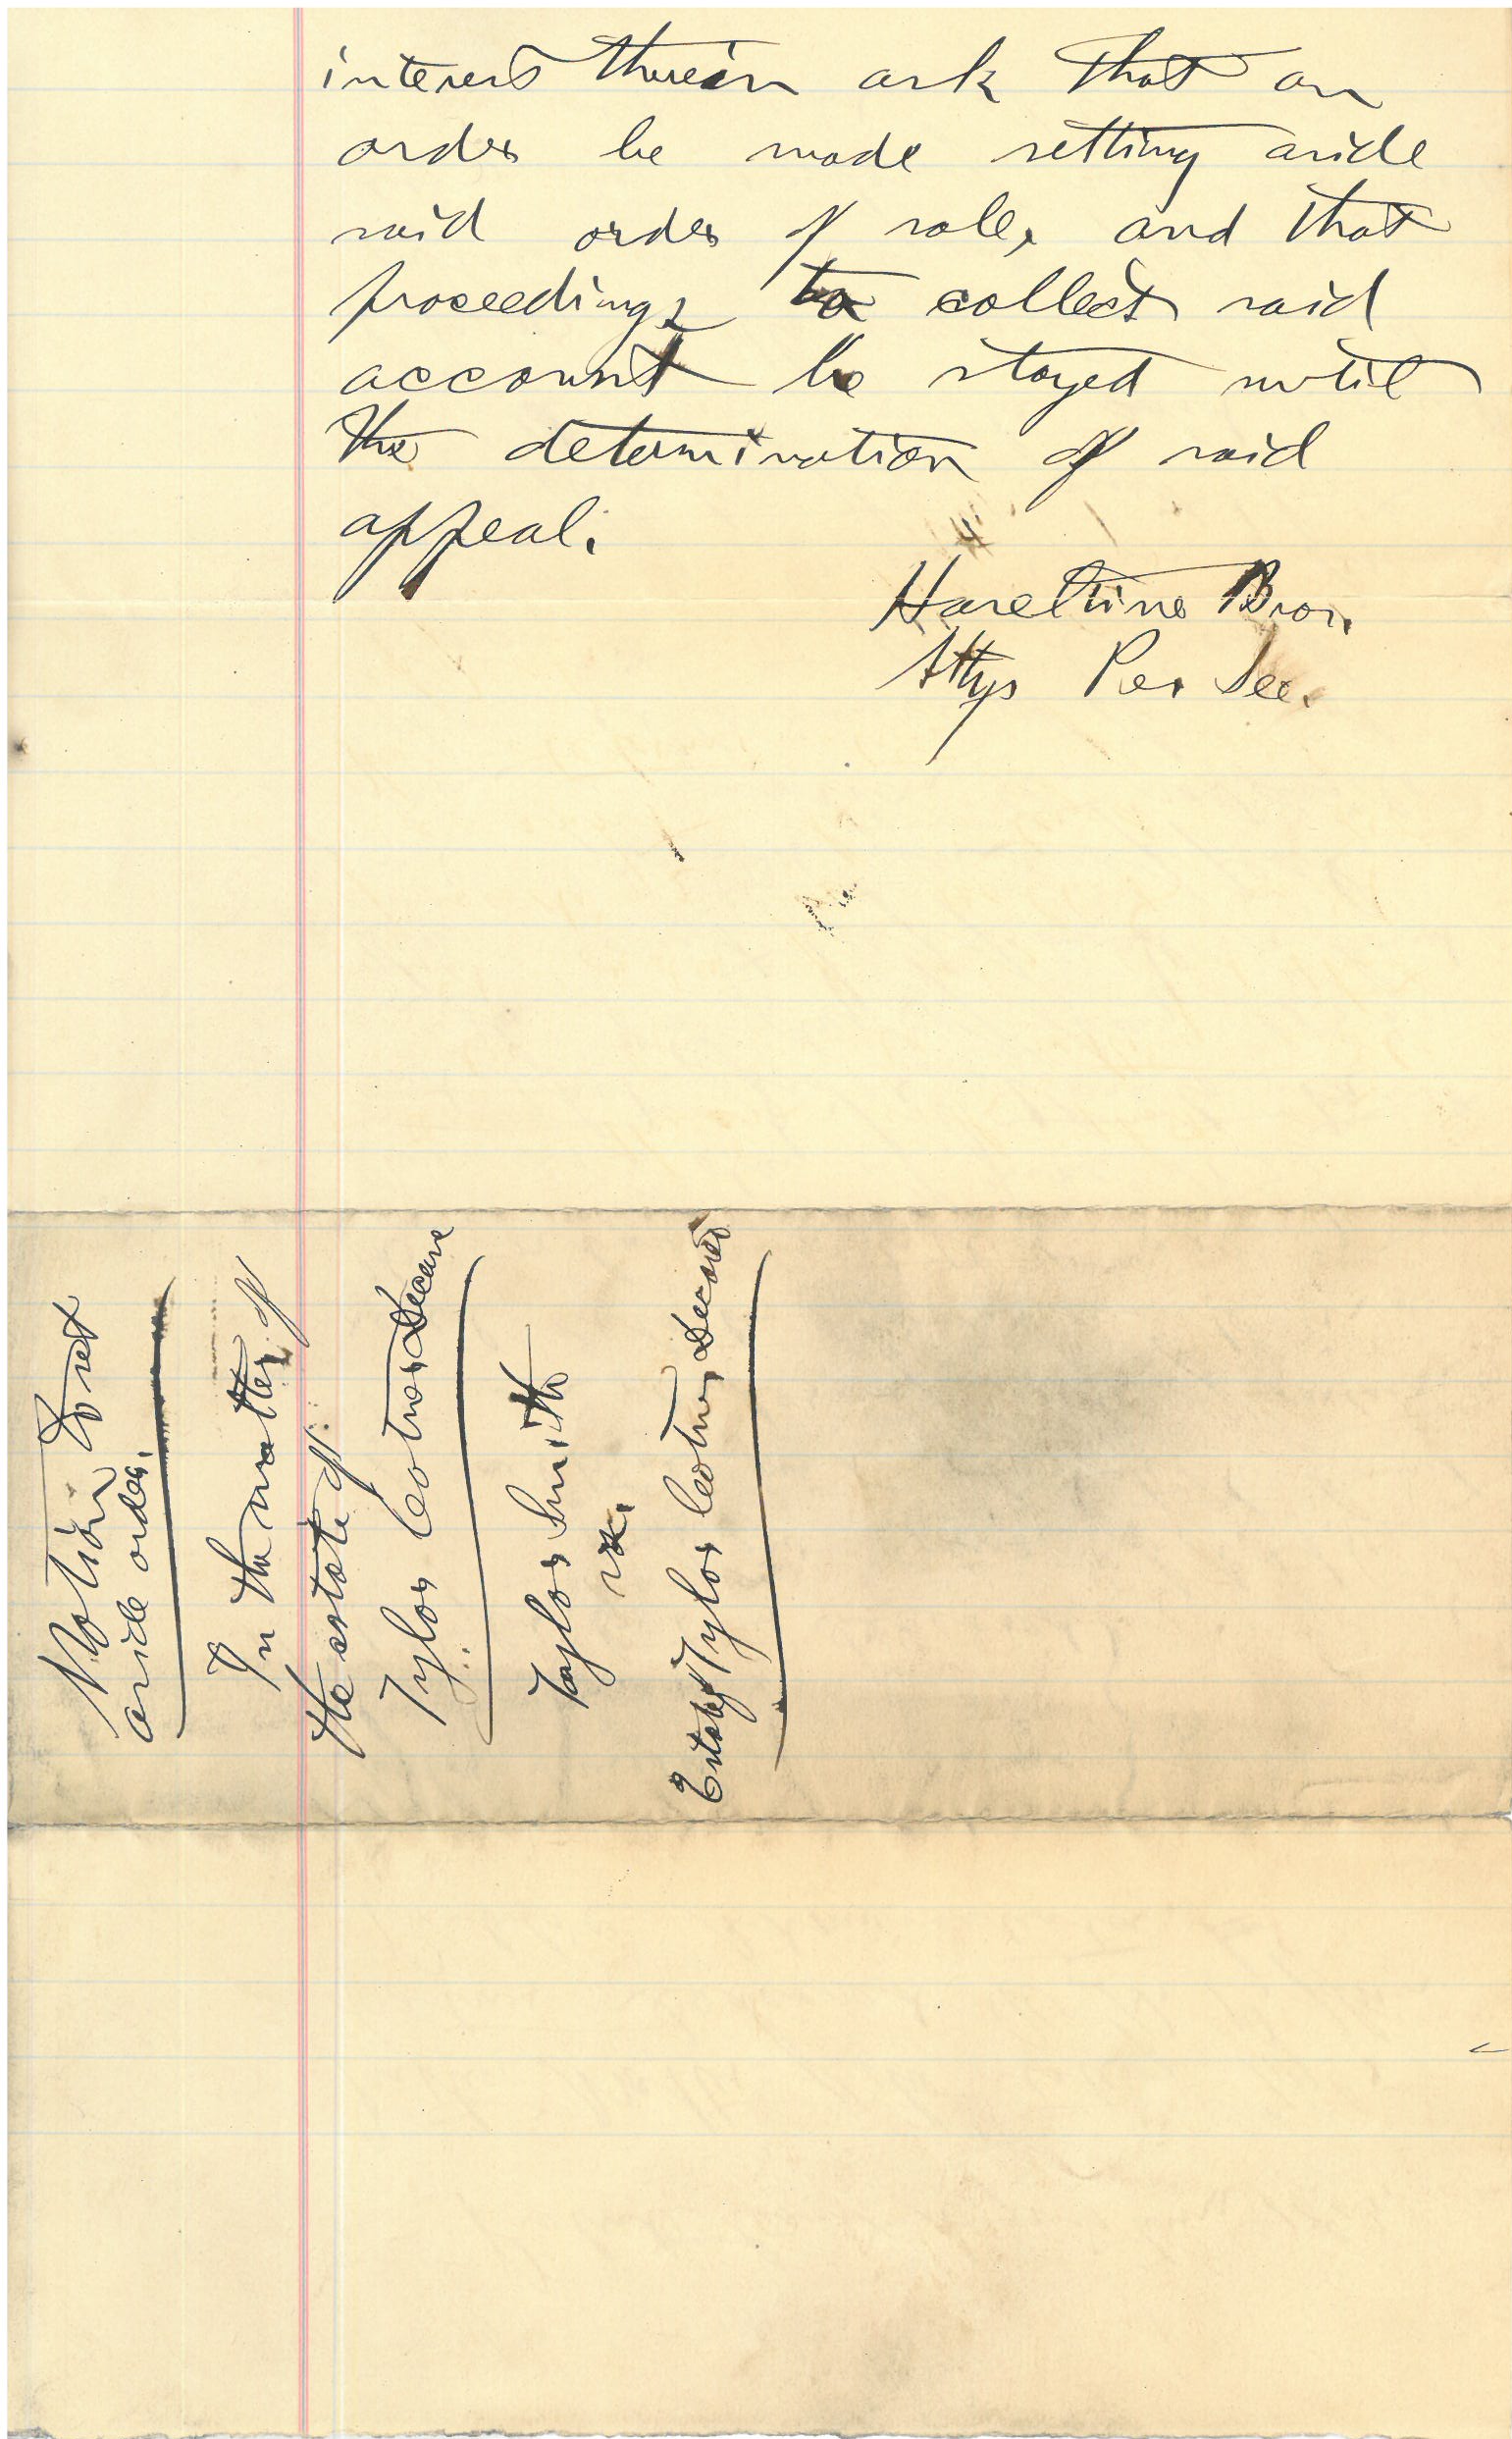 interest therein ask that an
order be made setting aside
said order of sale, and that
proceedings to collect said
account be stayed until
the determination of said
appeal.
Haseltine Bros.
Attys Per Dec.
Motion To set
aside order.
In the matter of
the estate of
Tylor Cotner Decease
Taylor Smith
vs.
Estate of Tylor Cotner, Deceased